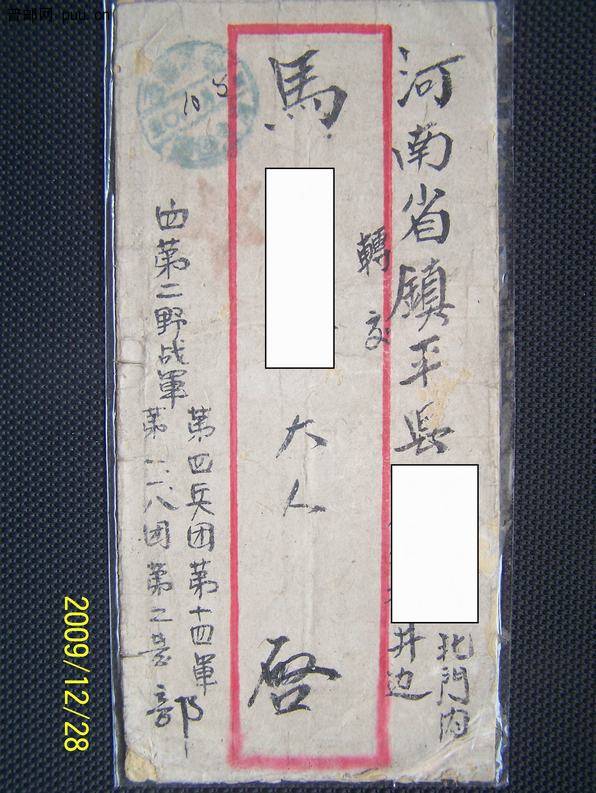 普邮网 puu.cn
河南省鎮平县
北門内
井边
轉交
馬
大人
啓
由第二野战軍
第四兵团第十四軍
第一二八团第二营部
2009/12/28